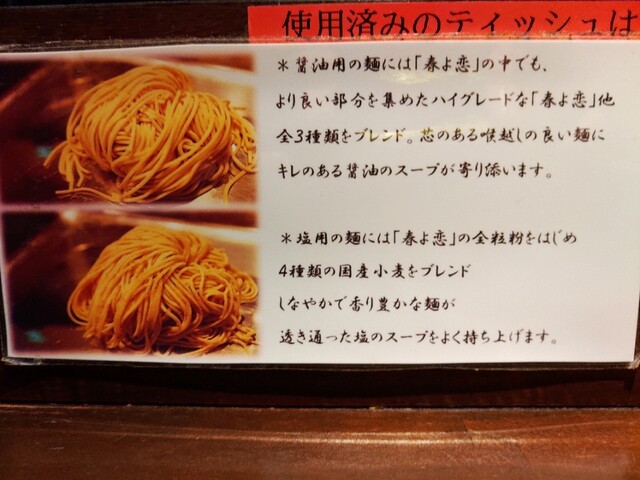 使用済みのティッシュは
＊醤油用の麺には「春よ恋」の中でも、
より良い部分を集めたハイグレードな「春よ恋」他
全3種類をブレンド。芯のある喉越しの良い麺に
キレのある醤油のスープが寄り添います。
＊塩用の麺には「春よ恋」の全粒粉をはじめ
4種類の国産小麦をブレンド
しなやかで香り豊かな麺が
透き通った塩のスープをよく持ち上げます。